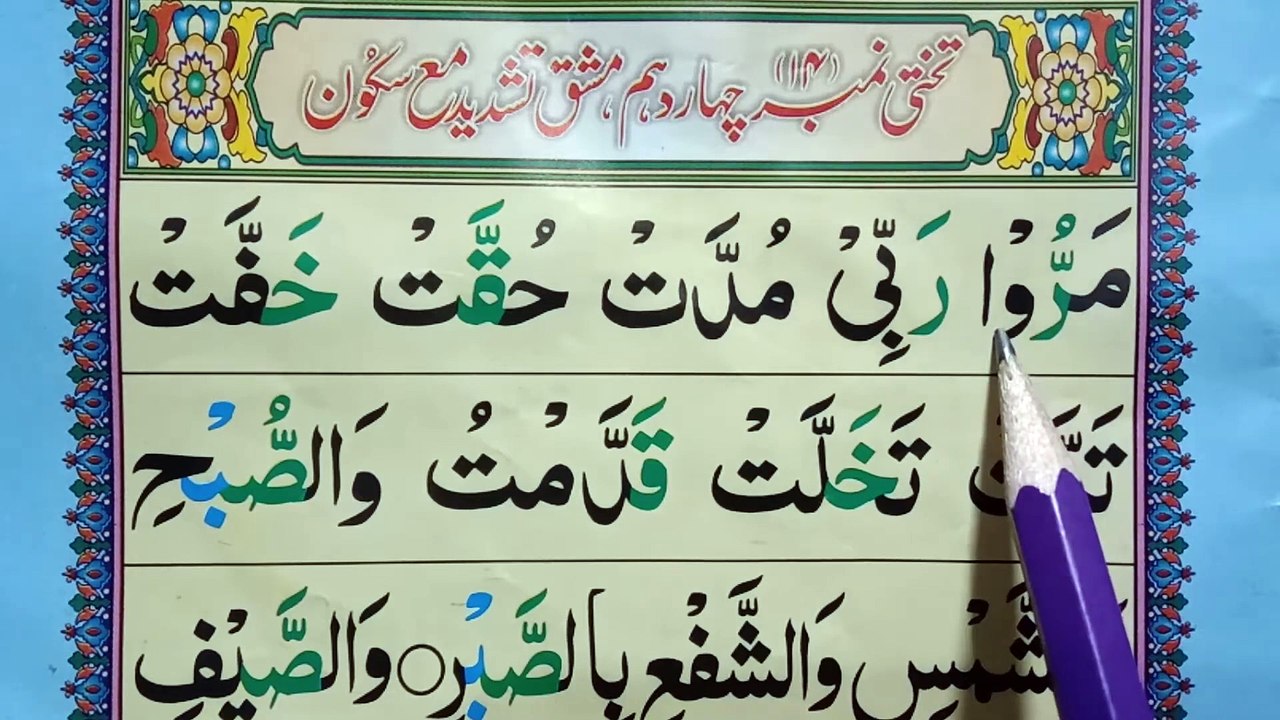 تختی نمبر (۱۴) چہاردہم، مشق تشدید مع سکُون
مَرُّوْا رَبِّيْ مُدَّتْ حُقَّتْ خَفَّتْ
تَخَلَّتْ قَدَّمْتُ وَالصُّبْحِ
وَالشَّفْعِ بِالصَّبْرِ ○ وَالصَّيْفِ